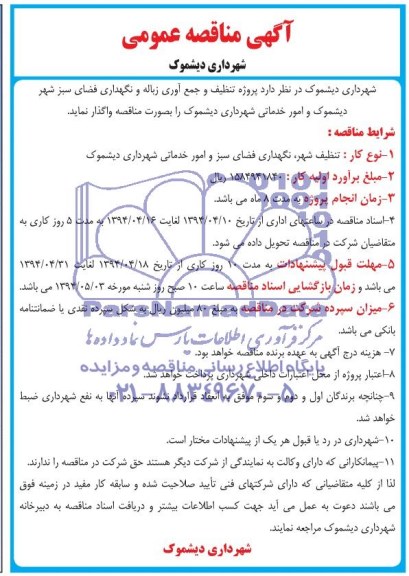 آگهی مناقصه عمومی
شهرداری دیشموک
شهرداری دیشموک در نظر دارد پروژه تنظیف و جمع آوری زباله و نگهداری فضای سبز شهر
دیشموک و امور خدماتی شهرداری دیشموک را بصورت مناقصه واگذار نماید.
شرایط مناقصه :
۱-نوع کار : تنظیف شهر، نگهداری فضای سبز و امور خدماتی شهرداری دیشموک
۲-مبلغ برآورد اولیه کار : ریال
۳-زمان انجام پروژه به مدت ۸ ماه می باشد.
۴-اسناد مناقصه در ساعتهای اداری از تاریخ ۱۳۹۴/۰۴/۱۰ لغایت ۱۳۹۴/۰۴/۱۶ به مدت ۵ روز کاری به
متقاضیان شرکت در مناقصه تحویل داده می شود.
۵-مهلت قبول پیشنهادات به مدت ۱۰ روز کاری از تاریخ ۱۳۹۴/۰۴/۱۸ لغایت ۱۳۹۴/۰۴/۳۱
می باشد و زمان بازگشایی اسناد مناقصه ساعت ۱۰ صبح روز شنبه مورخه ۱۳۹۴/۰۵/۰۳ می باشد.
۶-میزان سپرده شرکت در مناقصه به مبلغ ۸۰ میلیون ریال به شکل سپرده نقدی یا ضمانتنامه
بانکی می باشد.
۷- هزینه درج آگهی به عهده برنده مناقصه خواهد بود.
۸-اعتبار پروژه از محل اعتبارات داخلی شهرداری پرداخت خواهد شد.
۹-چنانچه برندگان اول و دوم و سوم موفق به انعقاد قرارداد نشوند سپرده آنها به نفع شهرداری ضبط
خواهد شد.
۱۰-شهرداری در رد یا قبول هر یک از پیشنهادات مختار است.
۱۱-پیمانکارانی که دارای وکالت به نمایندگی از شرکت دیگر هستند حق شرکت در مناقصه را ندارند.
لذا از کلیه متقاضیانی که دارای شرکتهای فنی تأیید صلاحیت شده و سابقه کار مفید در زمینه فوق
می باشند دعوت به عمل می آید جهت کسب اطلاعات بیشتر و دریافت اسناد مناقصه به دبیرخانه
شهرداری دیشموک مراجعه نمایند.
شهرداری دیشموک
ParsNamadData
مرکز فرآوری اطلاعات پارس نماد داده ها
پایگاه اطلاع رسانی مناقصه و مزایده
۰۲۱-۸۸۳۴۹۶۷۰-۵